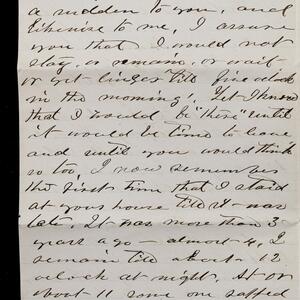 a sudden to you, and
likewise to me, I assure
you that I would not
stay, or remain, or wait
or get linger till five oclock
in the morning. Yet I know
that I would be "there" until
it would be time to leave
and until you would think
so too. I now remember
the first time that I staid
at your house till it was
late. It was more than 3
years ago - almost 4. I
remain till about 12
oclock at night. At or
about 11 some one rapped